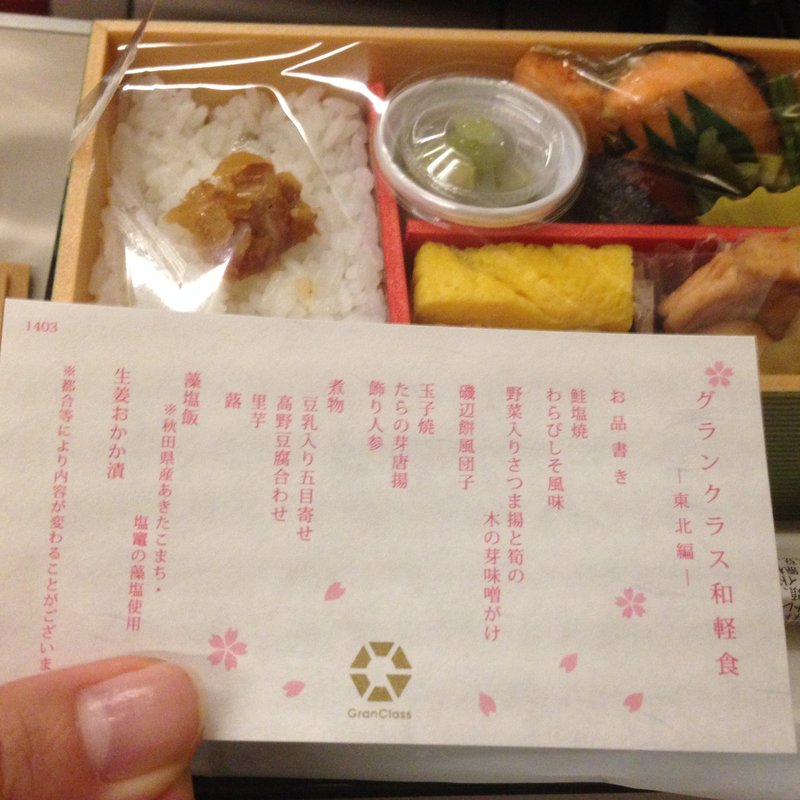 1403
グランクラス和軽食
―東北編―
お品書き
鮭塩焼
わらびしそ風味
野菜入りさつま揚と筍の
木の芽味噌がけ
磯辺餅風団子
玉子焼
たらの芽唐揚
飾り人参
煮物
豆乳入り五目寄せ
高野豆腐合わせ
里芋
蕗
藻塩飯
※秋田県産あきたこまち・
塩竈の藻塩使用
生姜おかか漬
※都合等により内容が変わることがございま
GranClass